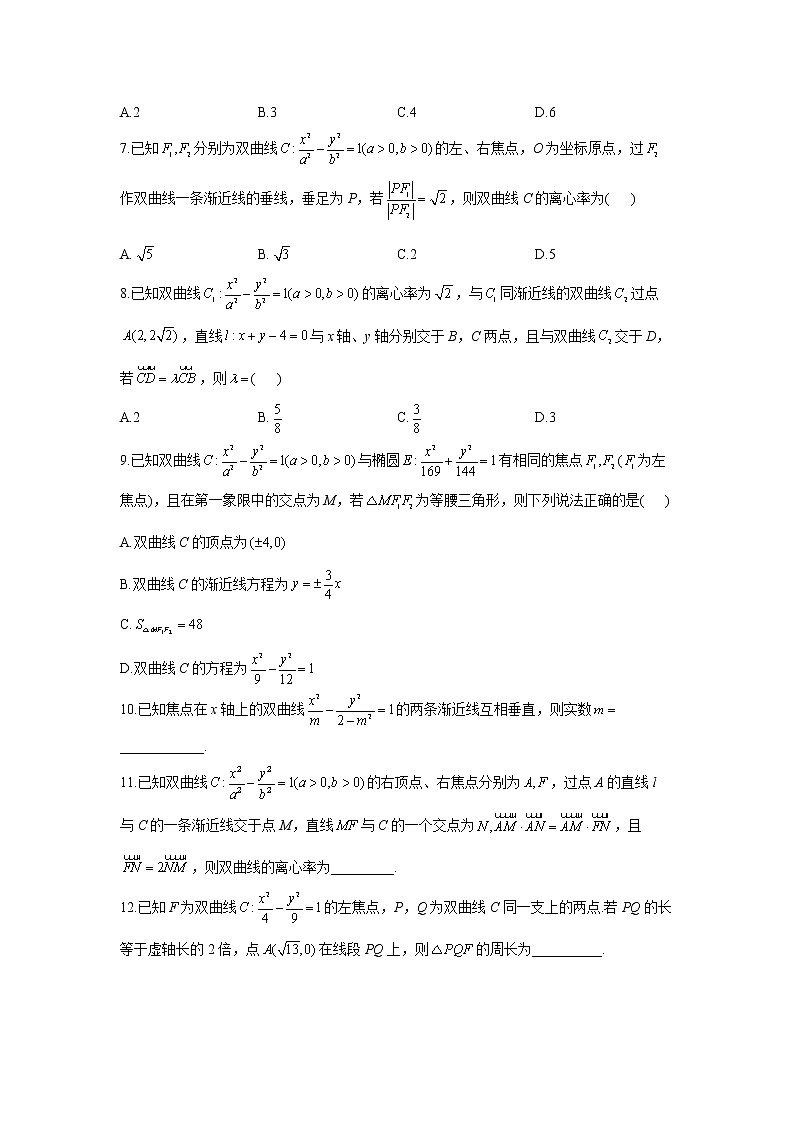 A.2 B.3 C.4 D.6
7.已知 F₁,F₂ 分别为双曲线 C: x²/a² − y²/b² = 1(a > 0, b > 0) 的左、右焦点，O 为坐标原点，过 F₂
作双曲线一条渐近线的垂线，垂足为 P，若 |PF₁|/|PF₂| = √2，则双曲线 C 的离心率为( )
A. √5 B. √3 C.2 D.5
8.已知双曲线 C₁: x²/a² − y²/b² = 1(a > 0, b > 0) 的离心率为 √2，与 C₁ 同渐近线的双曲线 C₂ 过点
A(2, 2√2)，直线 l: x + y − 4 = 0 与 x 轴、y 轴分别交于 B，C 两点，且与双曲线 C₂ 交于 D，
若 CD⃗ = λCB⃗，则 λ = ( )
A.2 B. 5/8 C. 3/8 D.3
9.已知双曲线 C: x²/a² − y²/b² = 1(a > 0, b > 0) 与椭圆 E: x²/169 + y²/144 = 1 有相同的焦点 F₁,F₂ ( F₁ 为左
焦点)，且在第一象限中的交点为 M，若 △MF₁F₂ 为等腰三角形，则下列说法正确的是( )
A.双曲线 C 的顶点为 (±4,0)
B.双曲线 C 的渐近线方程为 y = ± 3/4 x
C. S△MF₁F₂ = 48
D.双曲线 C 的方程为 x²/9 − y²/12 = 1
10.已知焦点在 x 轴上的双曲线 x²/m − y²/(2 − m²) = 1 的两条渐近线互相垂直，则实数 m =
____________.
11.已知双曲线 C: x²/a² − y²/b² = 1(a > 0, b > 0) 的右顶点、右焦点分别为 A, F，过点 A 的直线 l
与 C 的一条渐近线交于点 M，直线 MF 与 C 的一个交点为 N, AM⃗ · AN⃗ = AM⃗ · FN⃗，且
FN⃗ = 2NM⃗，则双曲线的离心率为_________.
12.已知 F 为双曲线 C: x²/4 − y²/9 = 1 的左焦点，P，Q 为双曲线 C 同一支上的两点.若 PQ 的长
等于虚轴长的 2 倍，点 A(√13,0) 在线段 PQ 上，则 △PQF 的周长为__________.